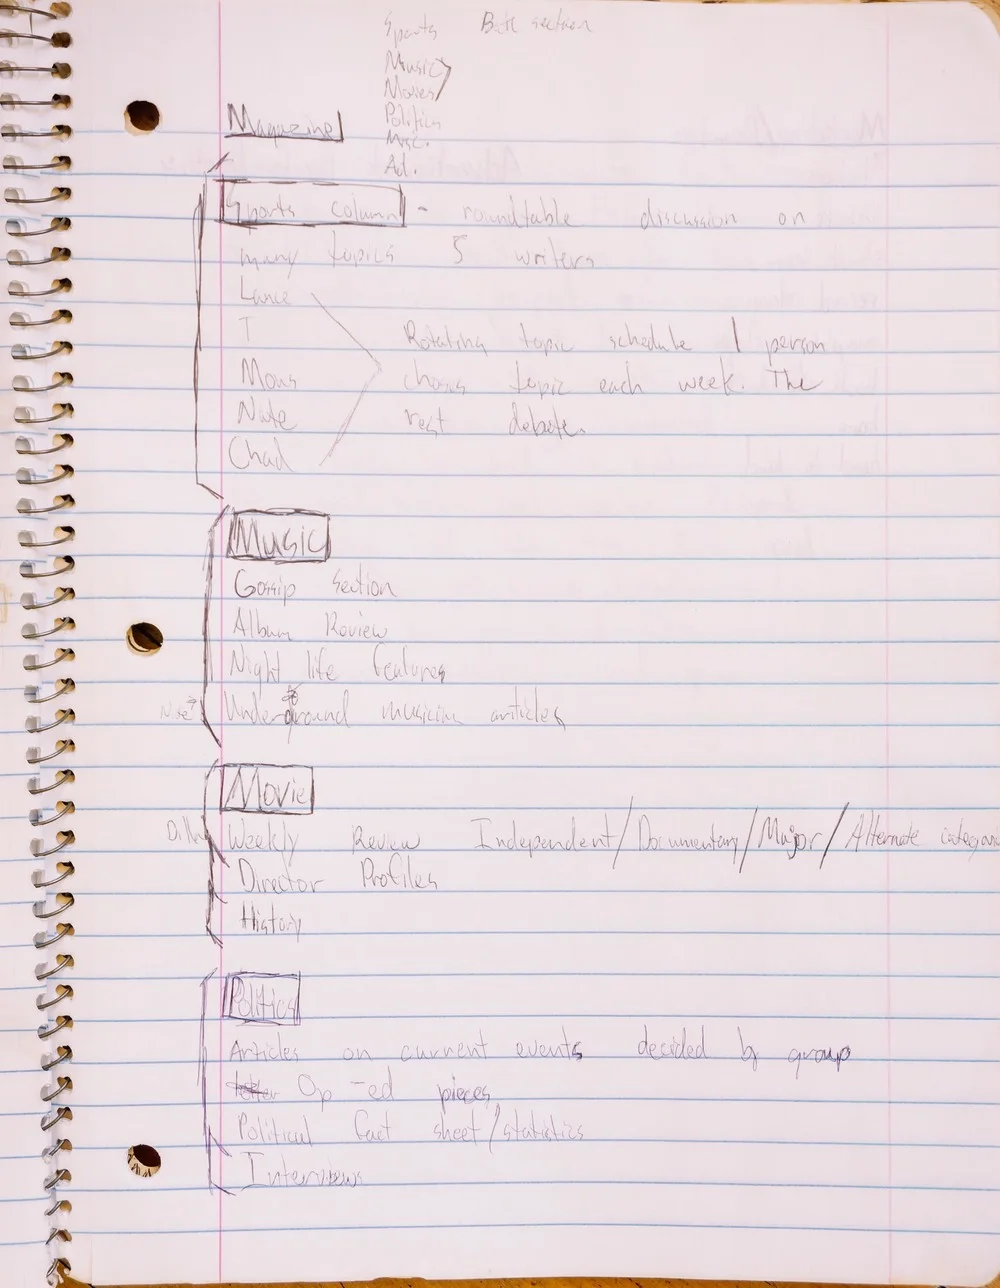 Sports
Music
Movies
Politics
Misc.
Ad.
Magazine
Sports column - roundtable discussion on
many topics 5 writers
Lance
T
Mous
Nate
Chad
Rotating topic schedule 1 person
choses topic each week. The
rest debate.
Music
Gossip section
Album Review
Night life features
Underground musician articles
Movie
Weekly Review Independent/Documentary/Major/Alternate
Director Profiles
History
Politics
Articles on current events decided by group
Op-ed pieces
Political fact sheet/statistics
Interviews